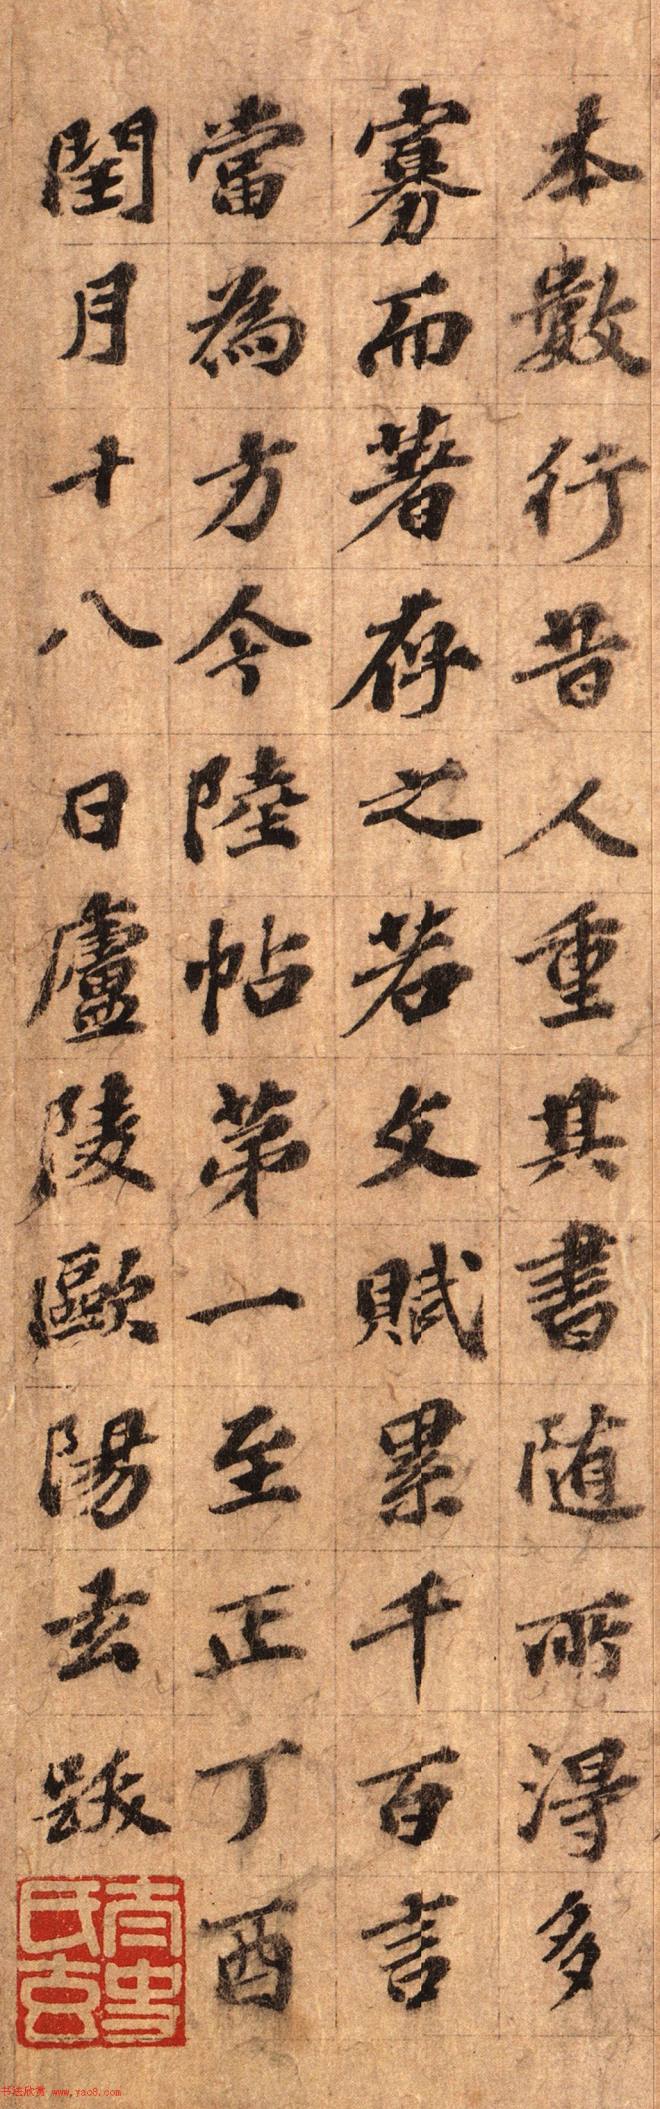 本數行昔人重其書随所得多
寡而著存之若文賦累千百言
當為方今陸帖第一至正丁酉
閏月十八日廬陵歐陽玄跋
书法欣赏 www.yac8.com